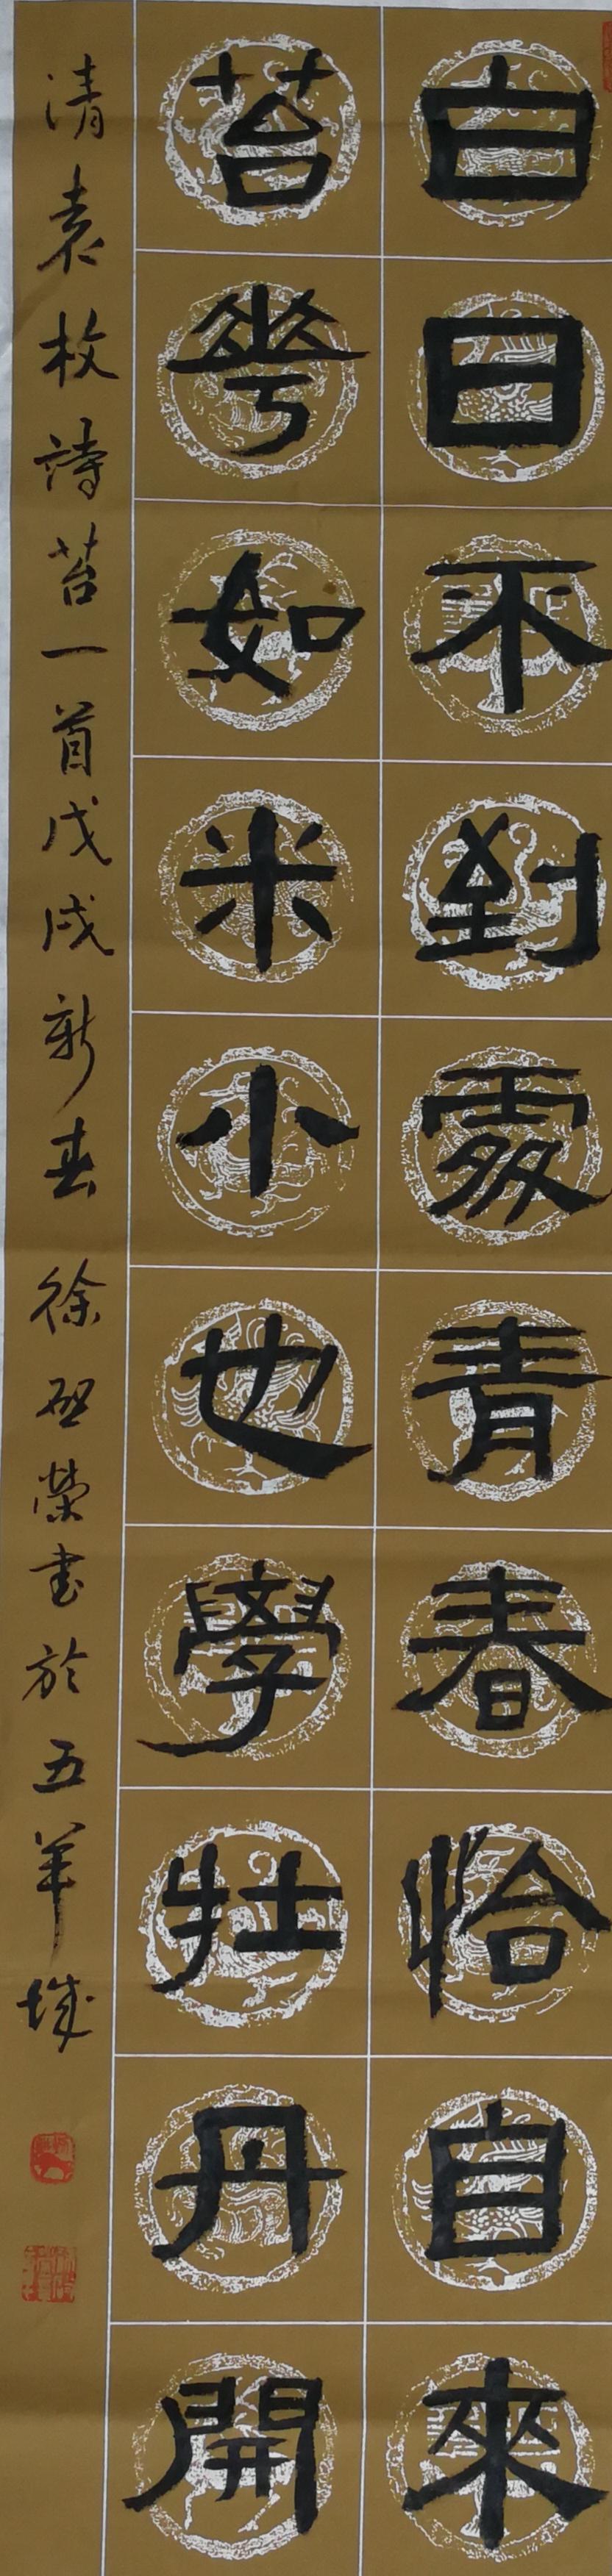 白日不到處青春恰自來
苔華如米小也學牡丹開
清袁枚詩苔一首戊戌新春徐啟榮書於五羊城